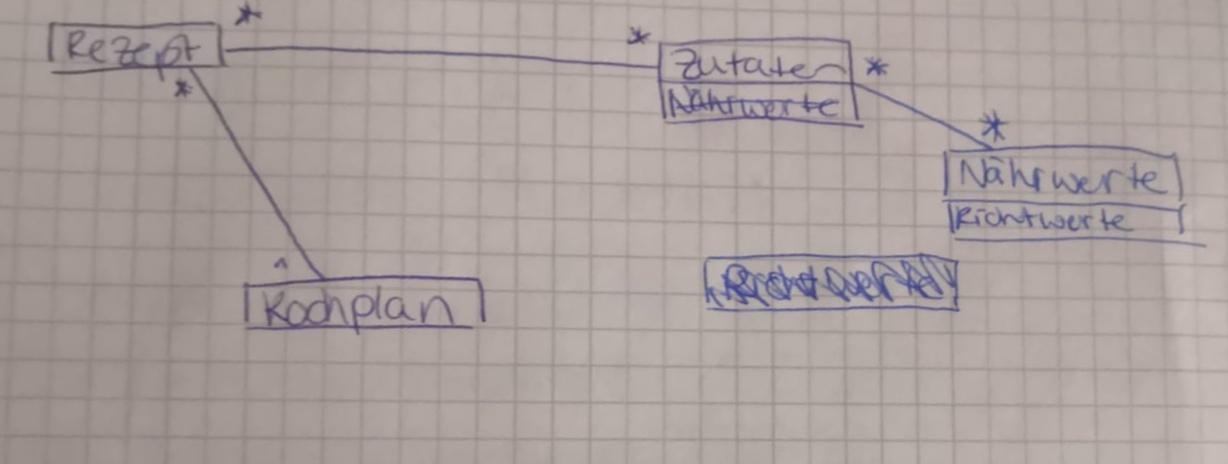 *
Rezept
*
*
Zutaten
*
Nährwerte
*
*
Nährwerte
Richtwerte
Kochplan